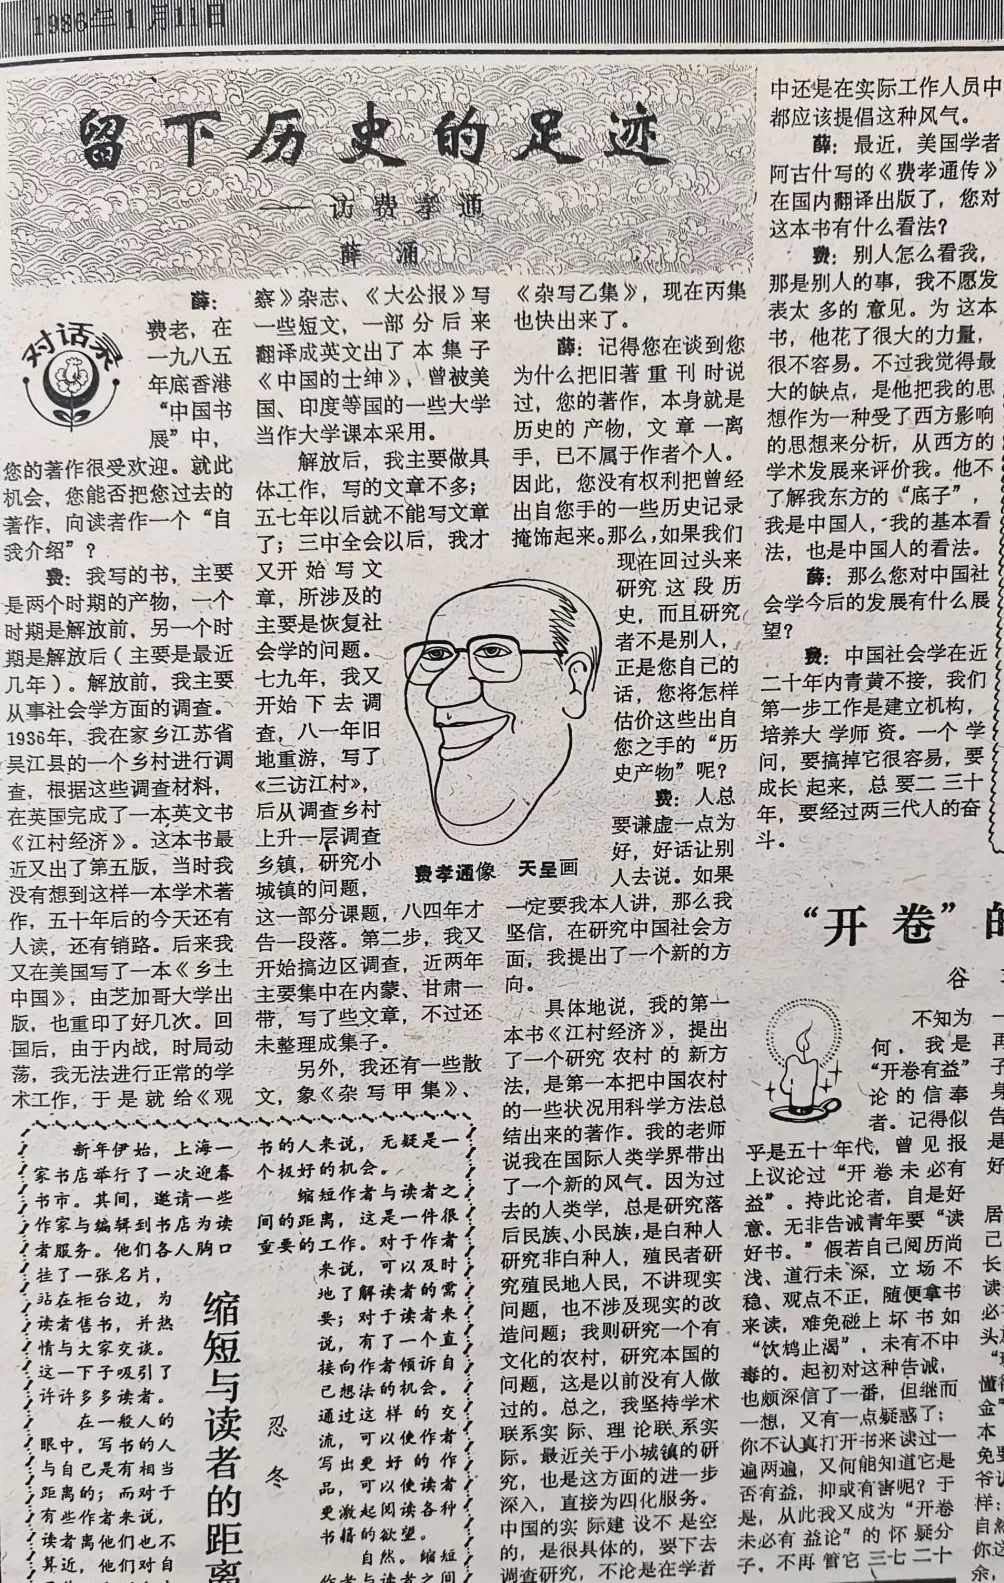 1986年1月11日
留下历史的足迹
——访费孝通
薛涌
对话录
薛：
费老，在
一九八五
年底香港
“中国书
展”中，
您的著作很受欢迎。就此
机会，您能否把您过去的
著作，向读者作一个“自
我介绍”？
费：我写的书，主要
是两个时期的产物，一个
时期是解放前，另一个时
期是解放后（主要是最近
几年）。解放前，我主要
从事社会学方面的调查。
1936年，我在家乡江苏省
吴江县的一个乡村进行调
查，根据这些调查材料，
在英国完成了一本英文书
《江村经济》。这本书最
近又出了第五版，当时我
没有想到这样一本学术著
作，五十年后的今天还有
人读，还有销路。后来我
又在美国写了一本《乡土
中国》，由芝加哥大学出
版，也重印了好几次。回
国后，由于内战，时局动
荡，我无法进行正常的学
术工作，于是就给《观
察》杂志、《大公报》写
一些短文，一部分后来
翻译成英文出了本集子
《中国的士绅》，曾被美
国、印度等国的一些大学
当作大学课本采用。
解放后，我主要做具
体工作，写的文章不多；
五七年以后就不能写文章
了；三中全会以后，我才
又开始写文
章，所涉及的
主要是恢复社
会学的问题。
七九年，我又
开始下去调
查，八一年旧
地重游，写了
《三访江村》，
后从调查乡村
上升一层调查
乡镇，研究小
城镇的问题，
这一部分课题，八四年才
告一段落。第二步，我又
开始搞边区调查，近两年
主要集中在内蒙、甘肃一
带，写了些文章，不过还
未整理成集子。
另外，我还有一些散
文，象《杂写甲集》、
《杂写乙集》，现在丙集
也快出来了。
薛：记得您在谈到您
为什么把旧著重刊时说
过，您的著作，本身就是
历史的产物，文章一离
手，已不属于作者个人。
因此，您没有权利把曾经
出自您手的一些历史记录
掩饰起来。那么，如果我们
现在回过头来
研究这段历
史，而且研究
者不是别人，
正是您自己的
话，您将怎样
估价这些出自
您之手的“历
史产物”呢？
费：人总
要谦虚一点为
好，好话让别
人去说。如果
一定要我本人讲，那么我
坚信，在研究中国社会方
面，我提出了一个新的方
向。
具体地说，我的第一
本书《江村经济》，提出
了一个研究农村的新方
法，是第一本把中国农村
的一些状况用科学方法总
结出来的著作。我的老师
说我在国际人类学界带出
了一个新的风气。因为过
去的人类学，总是研究落
后民族、小民族，是白种人
研究非白种人，殖民者研
究殖民地人民，不讲现实
问题，也不涉及现实的改
造问题；我则研究一个有
文化的农村，研究本国的
问题，这是以前没有人做
过的。总之，我坚持学术
联系实际、理论联系实
际。最近关于小城镇的研
究，也是这方面的进一步
深入，直接为四化服务。
中国的实际建设不是空
的，是很具体的，要下去
调查研究，不论是在学者
中还是在实际工作人员中
都应该提倡这种风气。
薛：最近，美国学者
阿古什写的《费孝通传》
在国内翻译出版了，您对
这本书有什么看法？
费：别人怎么看我，
那是别人的事，我不愿发
表太多的意见。为这本
书，他花了很大的力量，
很不容易。不过我觉得最
大的缺点，是他把我的思
想作为一种受了西方影响
的思想来分析，从西方的
学术发展来评价我。他不
了解我东方的“底子”，
我是中国人，我的基本看
法，也是中国人的看法。
薛：那么您对中国社
会学今后的发展有什么展
望？
费：中国社会学在近
二十年内青黄不接，我们
第一步工作是建立机构，
培养大学师资。一个学
问，要搞掉它很容易，要
成长起来，总要二三十
年，要经过两三代人的奋
斗。
费孝通像 天呈画
“开卷”的
谷
不知为
何，我是
“开卷有益”
论的信奉
者。记得似
乎是五十年代，曾见报
上议论过“开卷未必有
益”。持此论者，自是好
意。无非告诫青年要“读
好书。”假若自己阅历尚
浅、道行未深，立场不
稳、观点不正，随便拿书
来读，难免碰上坏书如
“饮鸩止渴”，未有不中
毒的。起初对这种告诫，
也颇深信了一番，但继而
一想，又有一点疑惑了；
你不认真打开书来读过一
遍两遍，又何能知道它是
否有益，抑或有害呢？于
是，从此我又成为“开卷
未必有益论”的怀疑分
子，不再管它三七二十
一
再
子
身
告
是
好
居
己
长
读
必
头
懂得
金”
本
免要
爷
样；
自然
你这
余，
缩短与读者的距离
忍冬
新年伊始，上海一
家书店举行了一次迎春
书市。其间，邀请一些
作家与编辑到书店为读
者服务。他们各人胸口
挂了一张名片，
站在柜台边，为
读者售书，并热
情与大家交谈。
这一下子吸引了
许许多多读者。
在一般人的
眼中，写书的人
与自己是有相当
距离的；而对于
有些作者来说，
读者离他们也不
算近，他们对自
书的人来说，无疑是一
个极好的机会。
缩短作者与读者之
间的距离，这是一件很
重要的工作。对于作者
来说，可以及时
地了解读者的需
要；对于读者来
说，有了一个直
接向作者倾诉自
己想法的机会。
通过这样的交
流，可以使作者
写出更好的作
品，可以使读者
更激起阅读各种
书籍的欲望。
自然。缩短
作者与读者之间